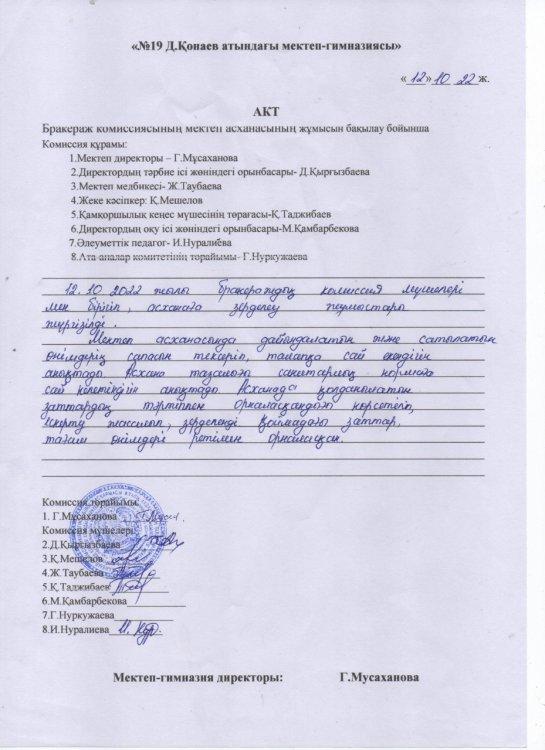 «№19 Д.Қонаев атындағы мектеп-гимназиясы»
«12» 10 22 ж.
АКТ
Бракераж комиссиясының мектеп асханасының жұмысын бақылау бойынша
Комиссия құрамы:
1.Мектеп директоры – Г.Мұсаханова
2.Директордың тәрбие ісі жөніндегі орынбасары- Д.Қырғызбаева
3.Мектеп медбикесі- Ж.Таубаева
4.Жеке кәсіпкер: Қ.Мешелов
5.Қамқоршылық кеңес мүшесінің төрағасы-Қ.Таджибаев
6.Директордың оқу ісі жөніндегі орынбасары-М.Қамбарбекова
7.Әлеуметтік педагог- И.Нуралиева
8.Ата аналар комитетінің төрайымы- Г.Нуркужаева
12.10.2022 жылы бракераждық комиссия мүшелері
мен бірігіп, асханаға зерделеу жұмыстары
жүргізілді.
Мектеп асханасында дайындалатын және сатылатын
өнімдерің сапасын тексеріп, талапқа сай екендігін
анықтады. Асхана тазалығы санитарлық нормаға
сай келетіндігін анықтады. Асханада қолданылатын
заттардың тәртіппен орналасқандығы көрсетіліп,
ескерту жасалып, зерделенді. Қоймадағы заттар,
тағам өнімдері ретімен орналасқан.
Комиссия төрайымы:
1. Г.Мұсаханова
Комиссия мүшелері:
2.Д.Қырғызбаева
3.Қ.Мешелов
4.Ж.Таубаева
5.Қ.Таджибаев
6.М.Қамбарбекова
7.Г.Нуркужаева
8.И.Нуралиева
Мектеп-гимназия директоры: Г.Мусаханова